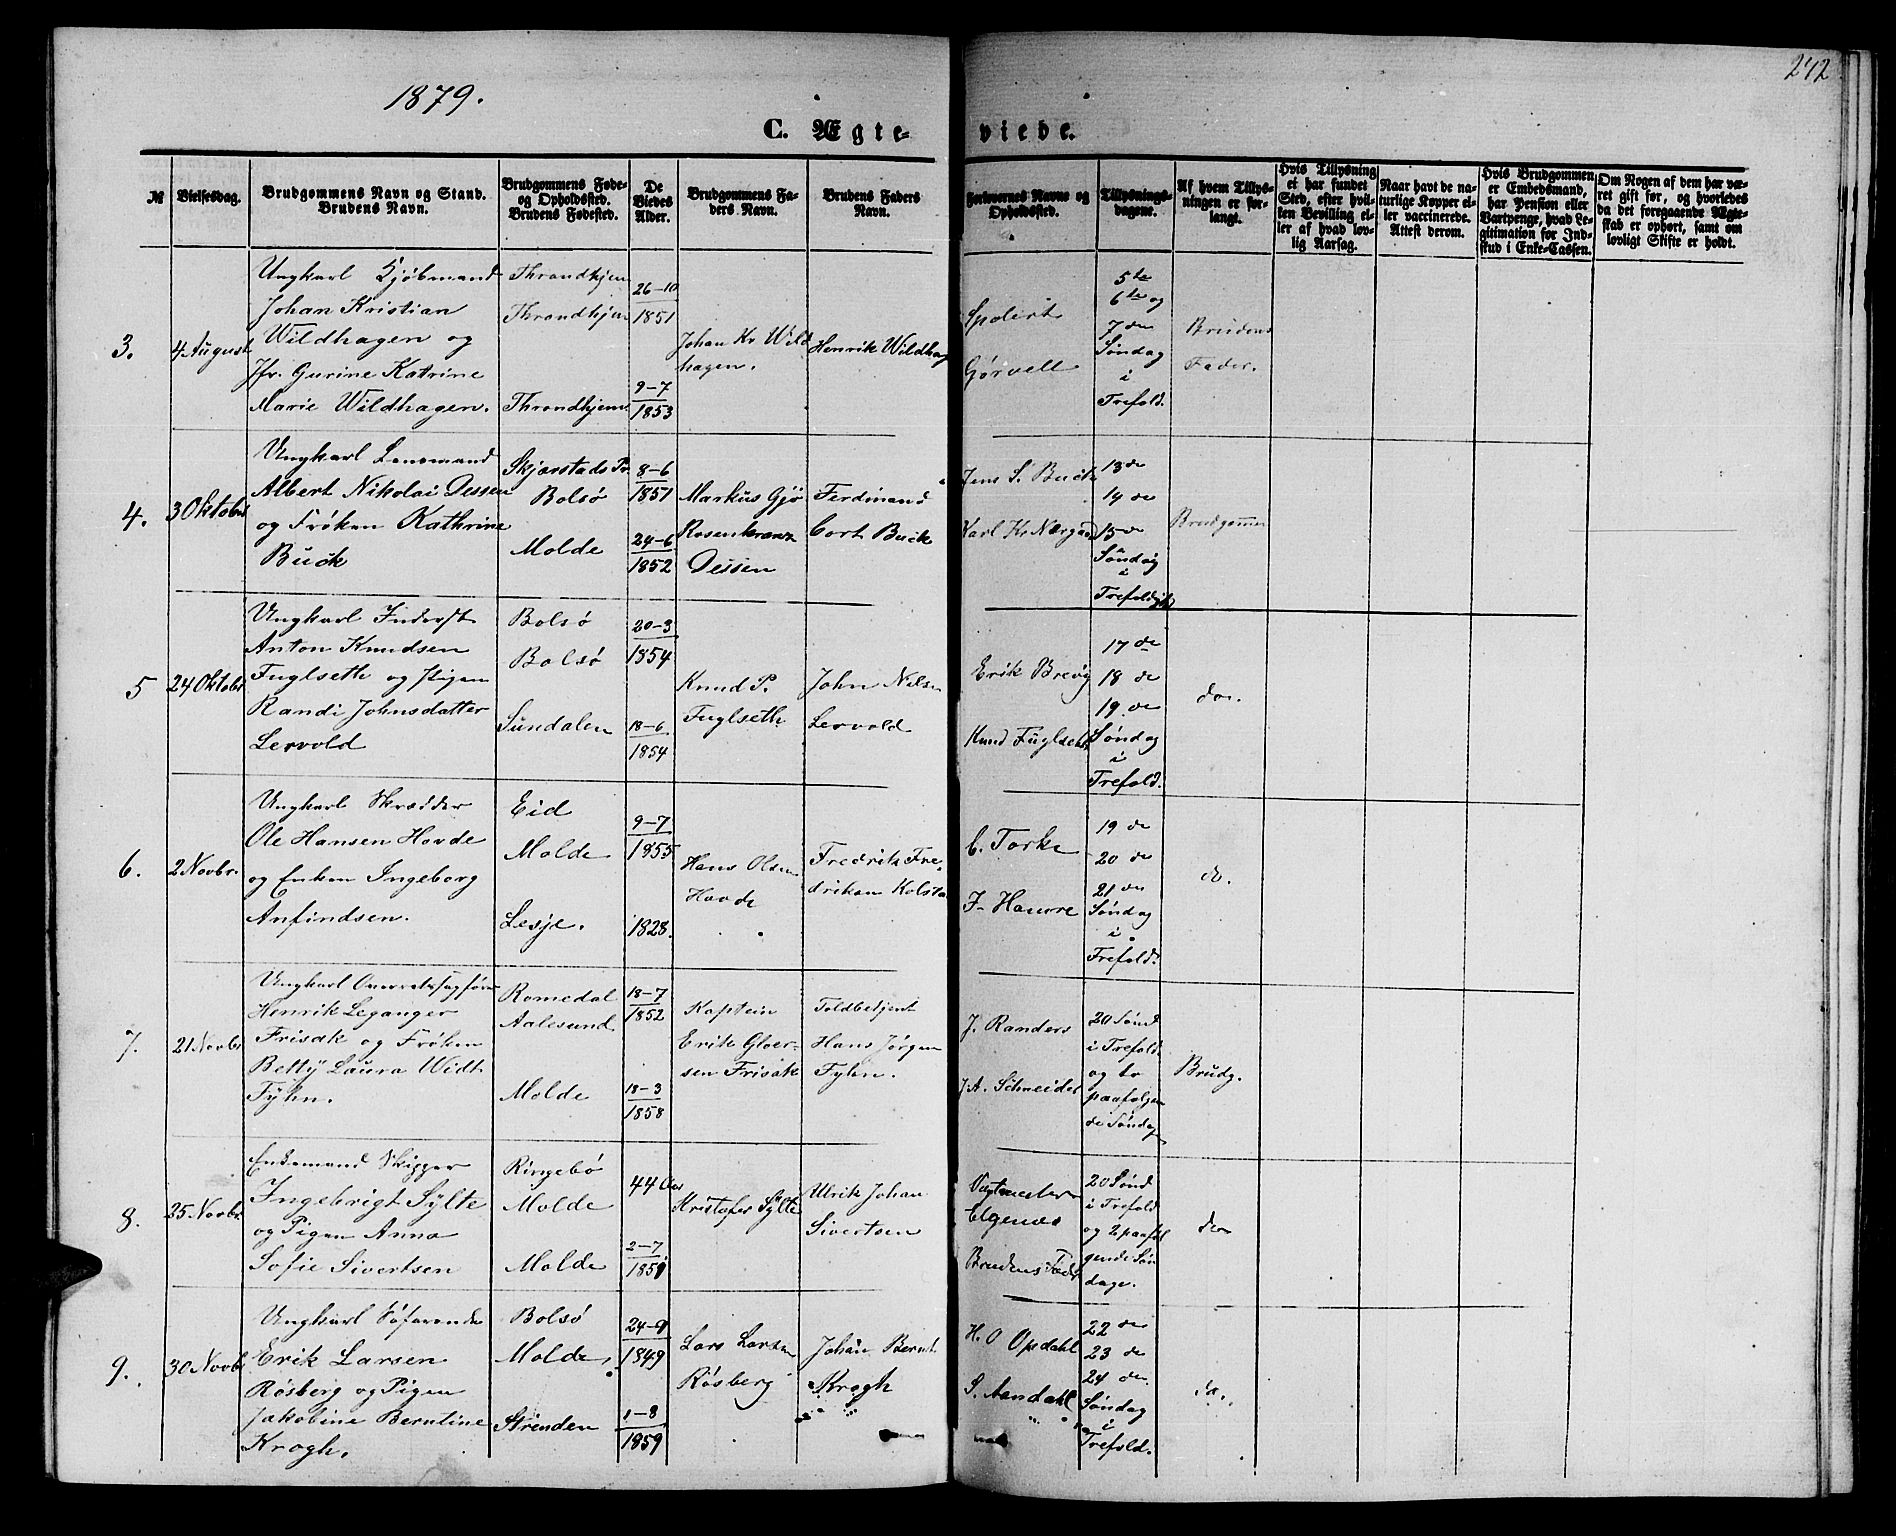 242
1879.
C. Ægteviede.
№
Vielsesdag.
Brudgommens Navn og Stand.
Brudens Navn.
Brudgommens Føde-
og Opholdssted.
Brudens Fødested.
De
Viedes
Alder.
Brudgommens Fa-
ders Navn.
Brudens Faders
Navn.
Forlovernes Navne og
Opholdssted.
Tillysnings-
dagene.
Af hvem Tillys-
ningen er for-
langt.
Hvis Tillysning
ei har fundet
Sted, efter hvil-
ken Bevilling el-
ler af hvad lov-
lig Aarsag.
Naar havt de na-
turlige Kopper el-
ler vaccinerede.
Attest derom.
Hvis Brudgommen
er Embedsmand,
har Pension eller
Vartpenge, hvad Le-
gitimation for Ind-
skud i Enke-Cassen.
Om Nogen af dem har væ-
ret gift før, og hvorledes
da det foregaaende Ægte-
skab er ophørt, samt om
lovligt Skifte er holdt.
3.
4 August
Ungkarl Kjøbmand
Johan Kristian
Wildhagen og
Jfr. Gurine Katrine
Marie Wildhagen.
Throndhjem
Throndhjem
Throndhjem
26-10
1851
9-7
1853
Johan Kr Wild
hagen.
Henrik Wildhag
Gørvell
5te
6te og
7de
Søndag
i
Trefold.
Brudens
Fader.
4.
3 Oktober
Ungkarl Lensmand
Albert Nikolai Dessen
og Frøken Kathrine
Buck
Skjerstads Pr.
Bolsø
Molde
8-6
1851
24-6
1852
Markus Gjø
Rosenkranz
Dessen
Ferdinand
Cort Buck
Jens S. Buck
Karl Kr Nærgaa
13de
14de
15de
Søndag
i
Trefoldigh
Brudgommen
5
24 Oktobr
Ungkarl Inderst
Anton Knudsen
Fuglseth og Pigen
Randi Johnsdatter
Lervold
Bolsø
Bolsø
Sundalen
20-3
1854
18-6
1854
Knud P.
Fuglseth
John Nilsen
Lervold
Erik Brevig
Knud Fuglseth
17de
18de
19.de
Søndag
i
Trefold.
do.
6.
2 Novbr.
Ungkarl Skrædder
Ole Hansen Hovde
og Enken Ingeborg
Anfindsen.
Eid
Molde
Lesje.
9-7
1855
1828.
Hans Olsen
Hovde
Fredrik Fre-
driksen Kolsta
C. Torke
F. Hamre
19de
20de
21de
Søndag
i
Trefold.
do.
7.
21 Novbr
Ungkarl Overretssagfører
Henrik Leganger
Frisak og Frøken
Betty Laura Widt
Fyhn.
Romedal
Aalesund
Molde
18-7
1852
18-3
1858
Kaptein
Erik Gloer-
sen Frisak
Toldbetjent
Hans Jørgen
Fyhn.
J. Randers
J.A. Schneider
20 Sønd
i Trefold.
og to
paafølgen
de Søndage
Brudg.
8.
25 Novbr.
Enkemand Skipper
Ingebrigt Sylte
og Pigen Anna
Sofie Sivertsen
Ringebø
Molde
Molde
44 Aar
2-7
1859
Kristofer Sylte
Ulrik Johan
Sivertsen
Vagtmester
Elgenes
Brudens Fader
20 Sønd
i Trefold
og 2 paaføl
gende Søn
dage.
do
9.
30 Novbr
Ungkarl Søfarende
Erik Larsen
Røsberg og Pigen
Jakobine Berntine
Krogh.
Bolsø
Molde
Strinden
24-9
1849
1-8
1859
Lars Larsen
Røsberg
Johan Bernt
Krogh
H. O Opdahl
S. Aandahl
22de
23de
24de
Søndag
i
Trefold.
do.